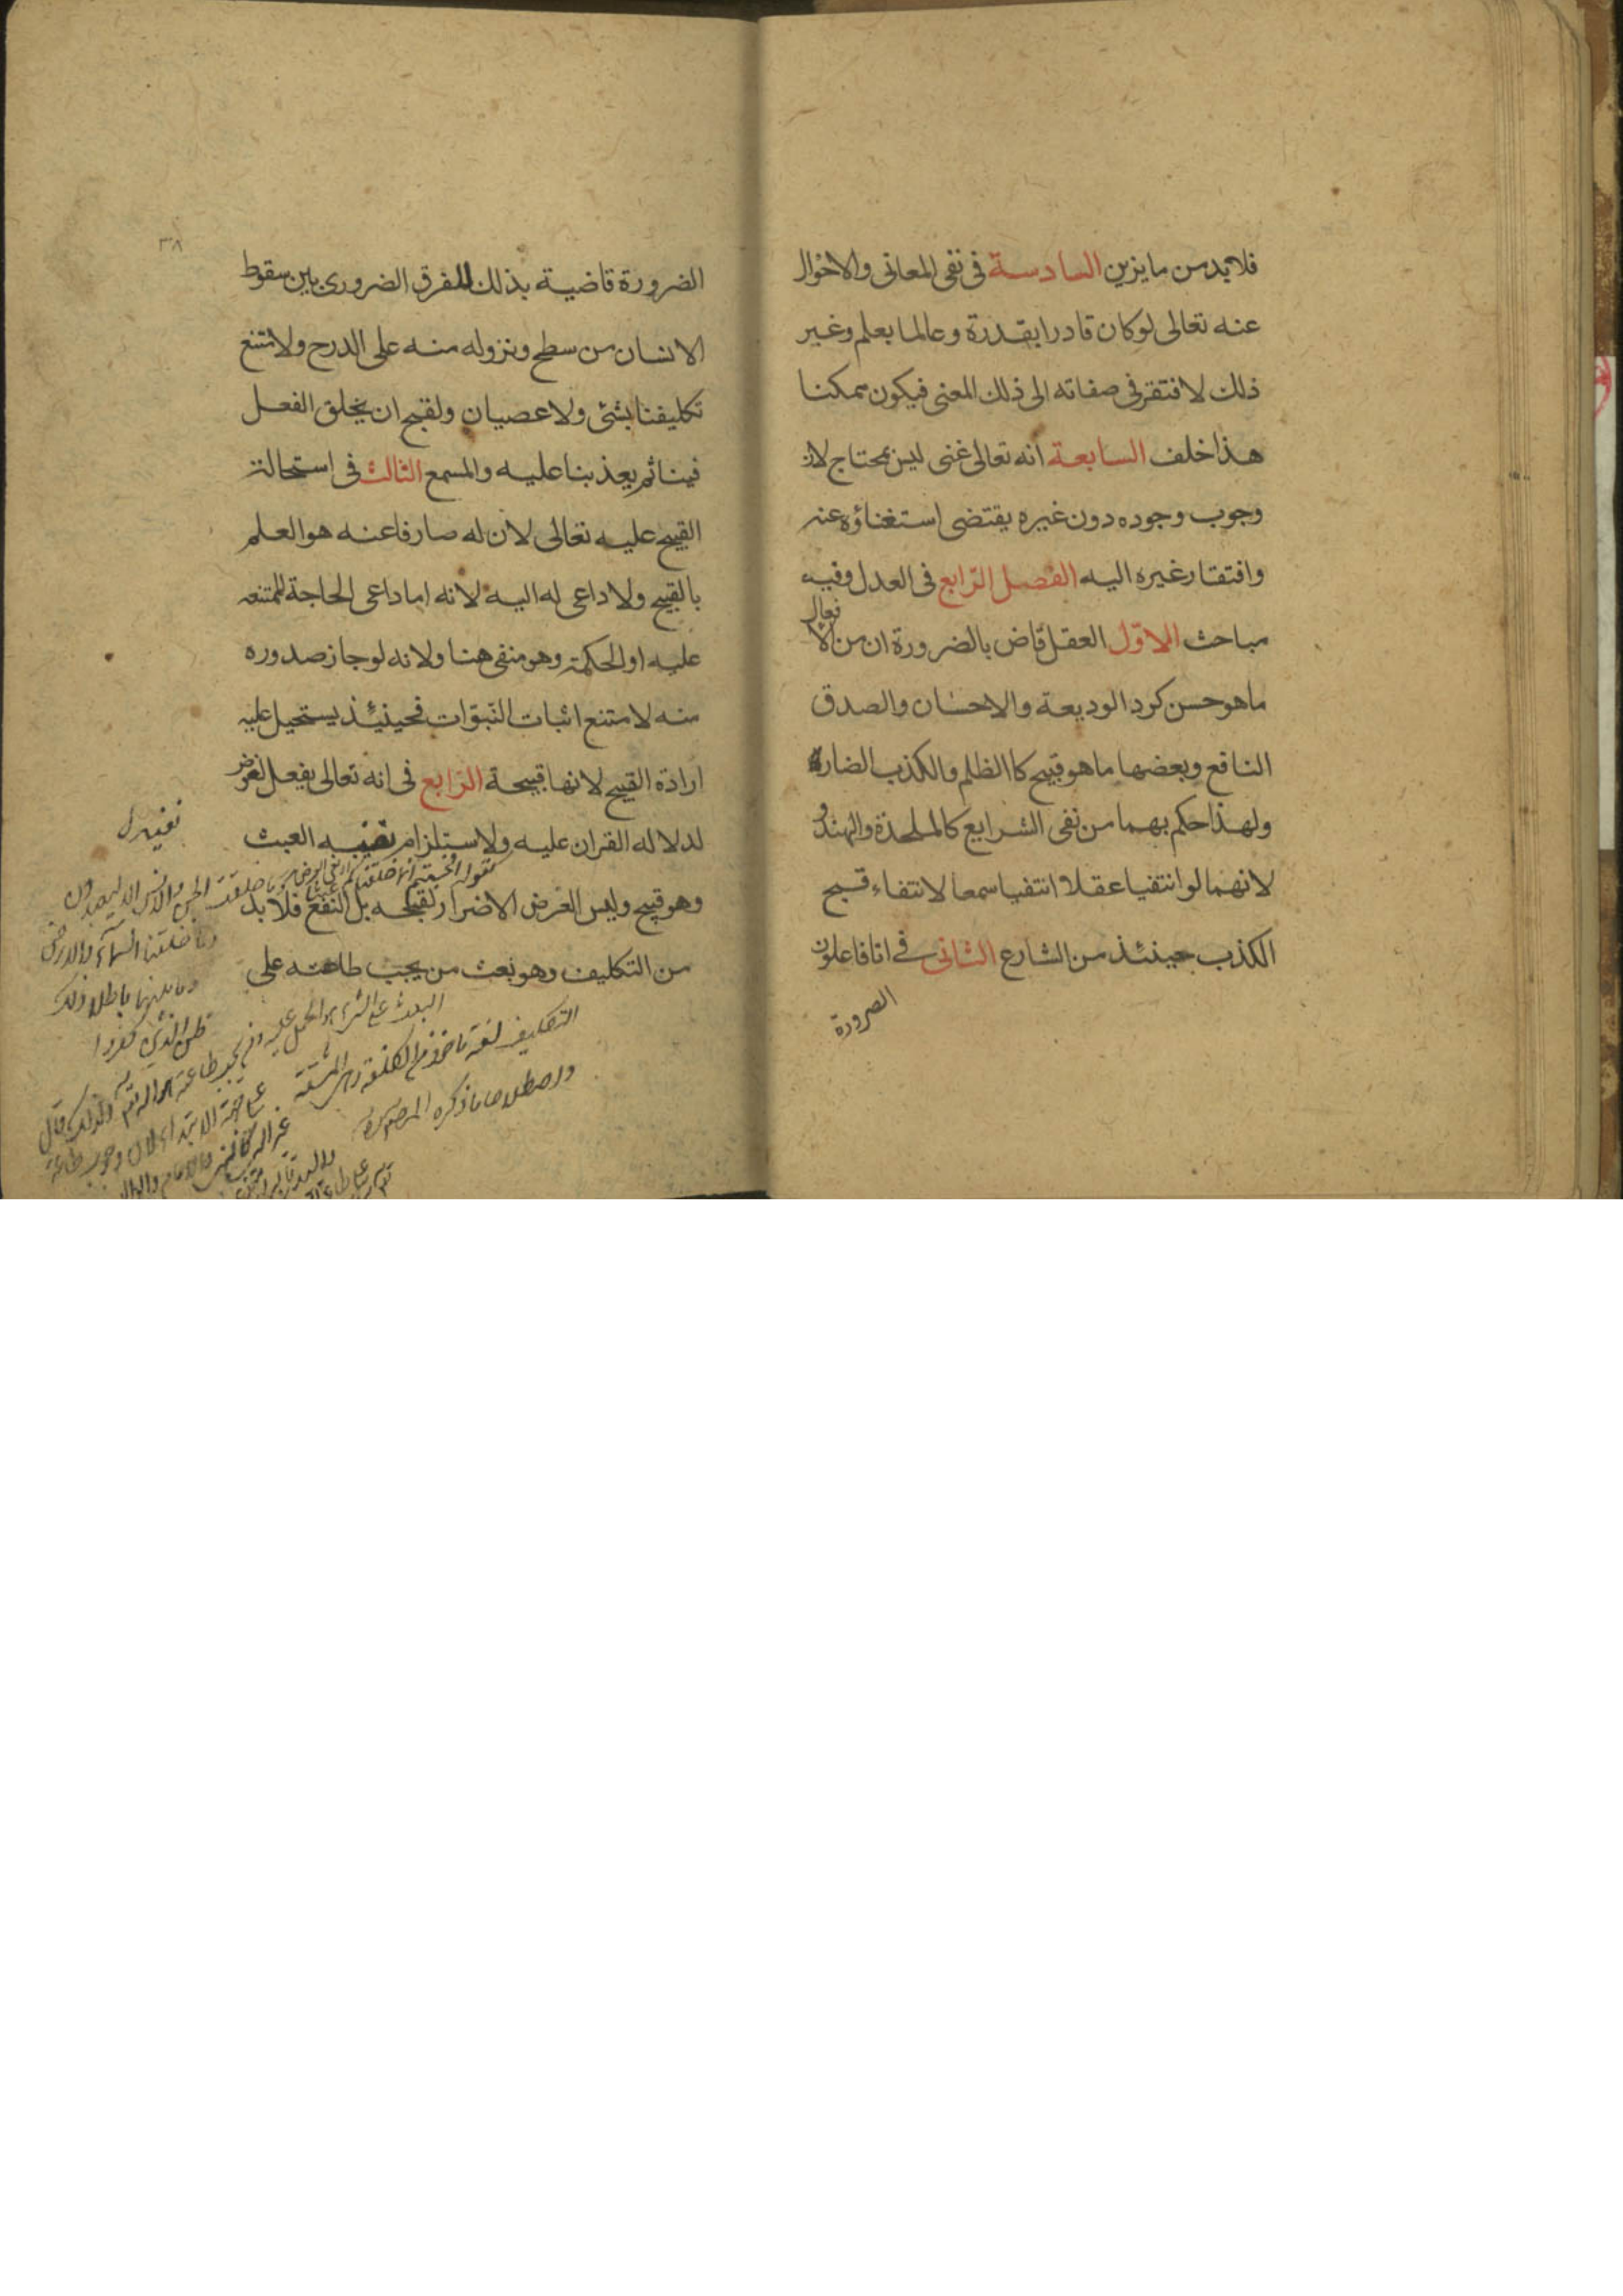 فلابد من مايزين السادسة فى نفى المعانى والاحوال
عنه تعالى لوكان قادرا بقدرة وعالما بعلم وغير
ذلك لافتقر فى صفاته الى ذلك المعنى فيكون ممكنا
هذا خلف السابعة انه تعالى غنى ليس بمحتاج لان
وجوب وجوده دون غيره يقتضى استغناؤه عنه
وافتقار غيره اليه الفصل الرّابع فى العدل وفيه
مباحث الاوّل العقل قاض بالضرورة ان من الافعال
ماهو حسن كرد الوديعة والاحسان والصدق
النافع وبعضها ماهو قبيح كاالظلم والكذب الضار
ولهذا حكم بهما من نفى الشرايع كالملحدة والهند
لانهما لو انتفيا عقلا انتفيا سمعا لانتفاء قبح
الكذب حينئذ من الشارع الثانى فى انا فاعلون
الضرورة
٣٨
الضرورة قاضية بذلك للفرق الضرورى بين سقوط
الانسان من سطح ونزوله منه على الدرج ولامتنع
تكليفنا بشئ ولا عصيان ولقبح ان يخلق الفعل
فينا ثم يعذبنا عليه والسمع الثالث فى استحالة
القبيح عليه تعالى لان له صارفا عنه هو العلم
بالقبيح ولا داعى له اليه لانه اما داعى الحاجة الممتنعه
عليه او الحكمة وهو منفى هنا ولانه لوجاز صدوره
منه لامتنع اثبات النّبوّات فحينئذ يستحيل عليه
ارادة القبيح لانها قبيحة الرّابع فى انه تعالى يفعل لغرض
لدلاله القران عليه ولاستلزام نفيه العبث
وهو قبيح وليس الغرض الاضرار لقبحه بل النفع فلا بد
من التكليف وهو بعث من يجب طاعته على
وما خلقت الجن والانس الا ليعبدون
وما خلقنا السماء والارض
وما بينهما باطلا ذلك
ظن الذين كفروا
التكليف لغة ماخوذ من الكلفة وهى المشقة
واصطلاحا ما ذكره المص